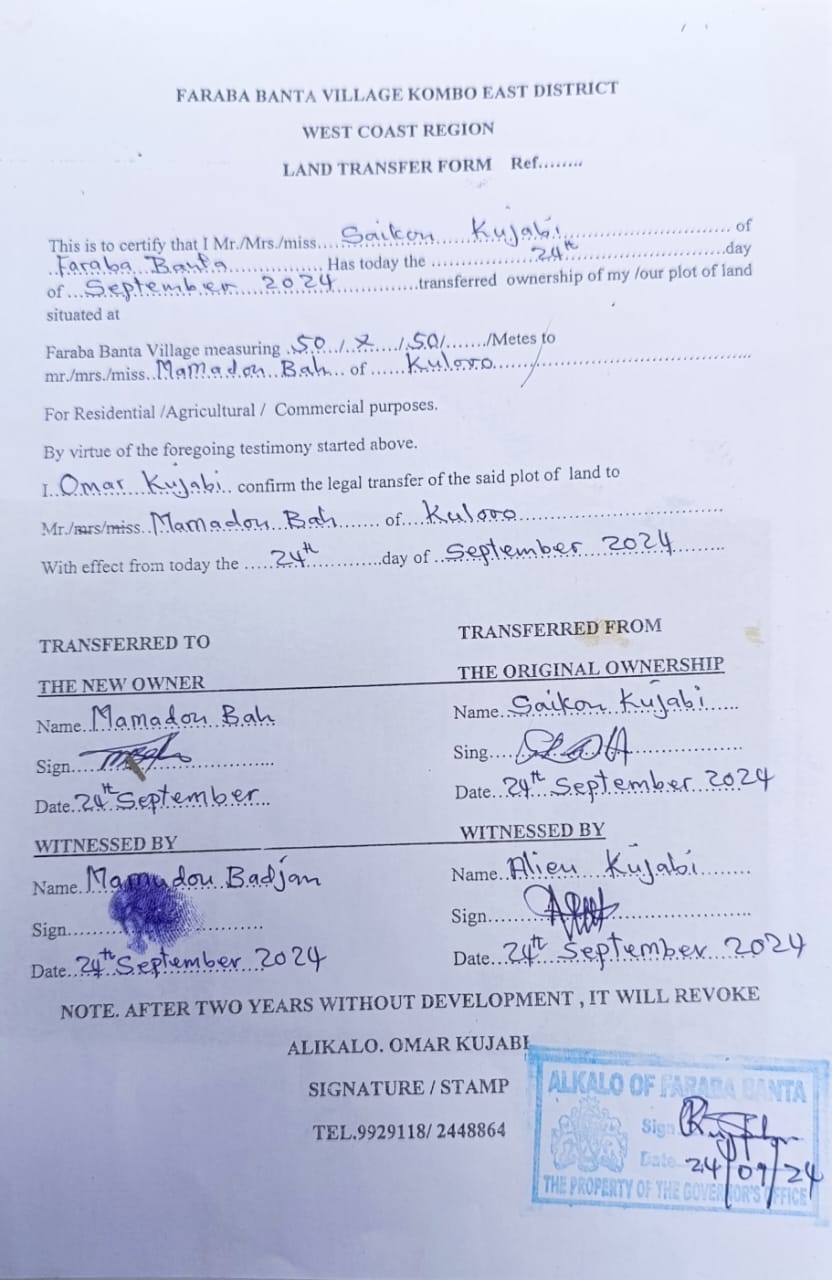 FARABA BANTA VILLAGE KOMBO EAST DISTRICT
WEST COAST REGION
LAND TRANSFER FORM Ref........
This is to certify that I Mr./Mrs./miss....Saikou Kujabi.................................. of
..Faraba Banta................ Has today the ..................24th..........................day
of...September 2024..............transferred ownership of my /our plot of land
situated at
Faraba Banta Village measuring .50./..x.../.50/......./Metes to
mr./mrs./miss..Mamadou Bah... of ......Kuloro...............................................
For Residential /Agricultural / Commercial purposes.
By virtue of the foregoing testimony started above.
I..Omar Kujabi.. confirm the legal transfer of the said plot of land to
Mr./mrs/miss..Mamadou Bah....... of....Kuloro.......................................
With effect from today the .....24th............day of ..September 2024.........
TRANSFERRED TO
THE NEW OWNER
Name..Mamadou Bah
Sign....................................
Date..24th September...
WITNESSED BY
Name.Mamudou Badjan
Sign....................................
Date..24th September 2024
TRANSFERRED FROM
THE ORIGINAL OWNERSHIP
Name..Saikou Kujabi......
Sing....................................
Date...24th September 2024
WITNESSED BY
Name..Alieu Kujabi.........
Sign....................................
Date...24th September 2024
NOTE. AFTER TWO YEARS WITHOUT DEVELOPMENT , IT WILL REVOKE
ALIKALO. OMAR KUJABI
SIGNATURE / STAMP
TEL.9929118/ 2448864
ALKALO OF FARABA BANTA
Sign
Date 24/09/24
THE PROPERTY OF THE GOVERNOR'S OFFICE